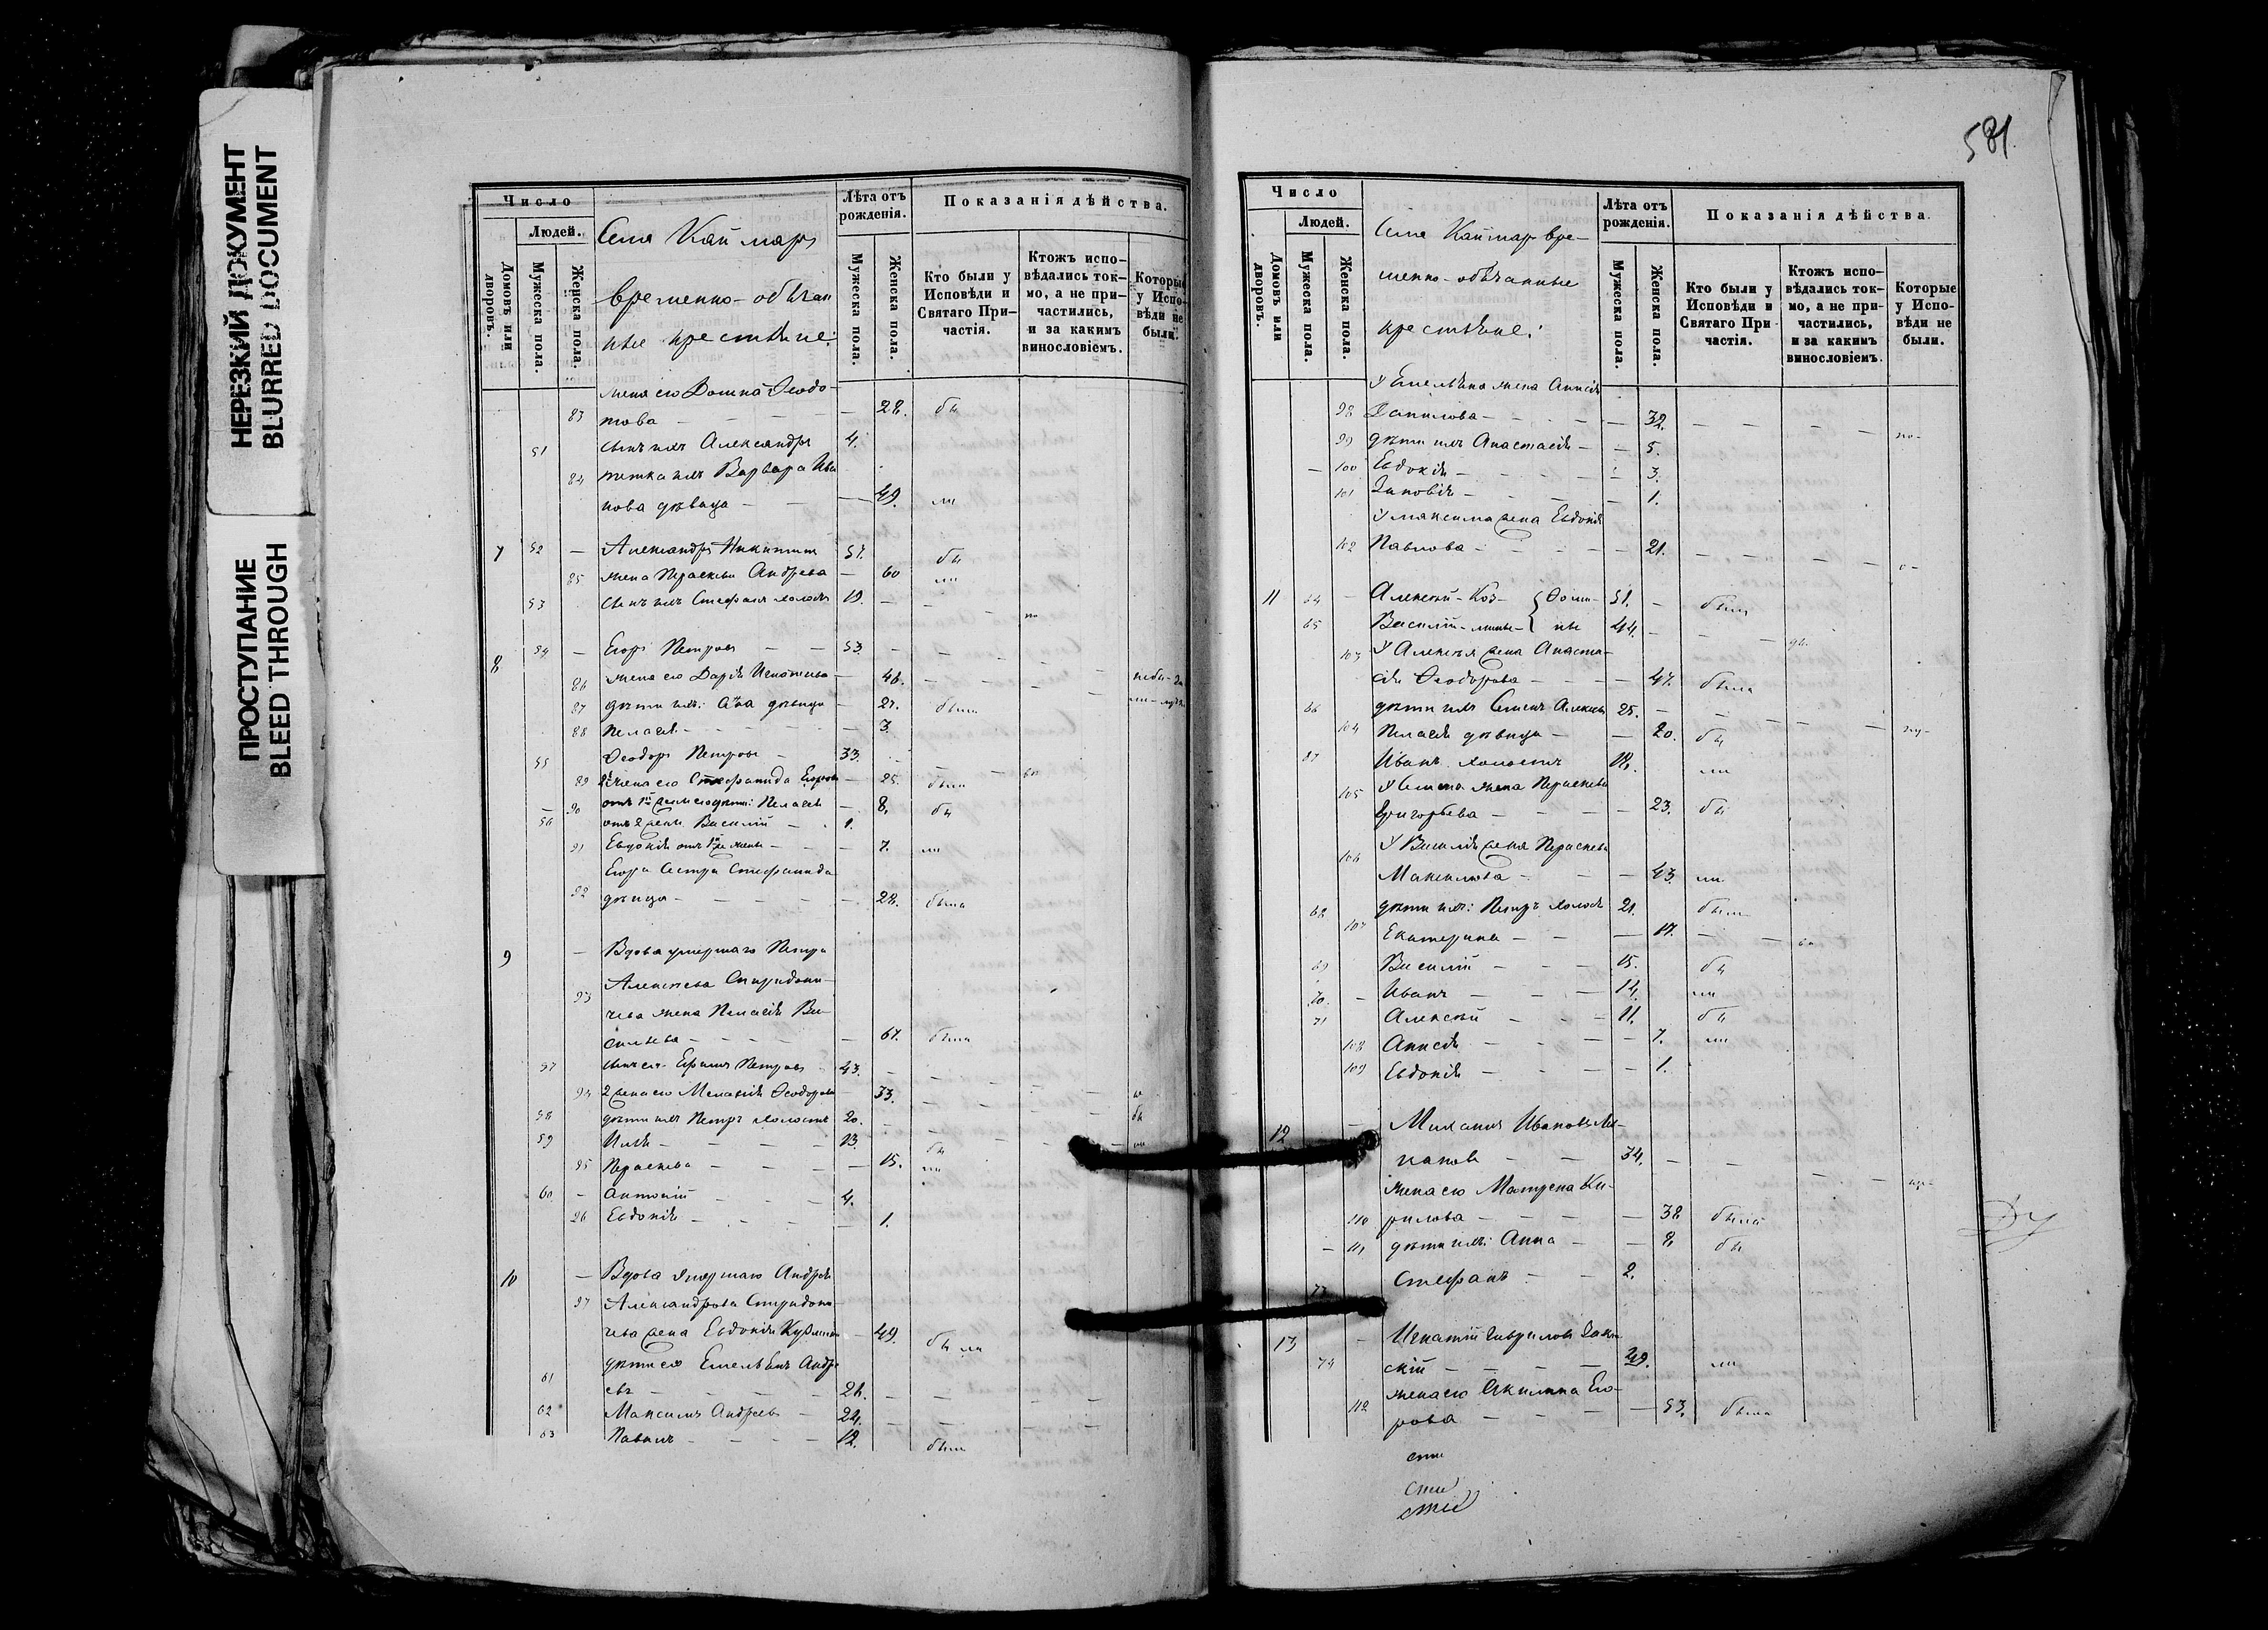 НЕРЕЗКИЙ ДОКУМЕНТ
BLURRED DOCUMENT
ПРОСТУПАНИЕ
BLEED THROUGH
Число
Людей.
Домовъ или дворовъ.
Мужеска пола.
Женска пола.
Села Каймаръ
временно-обязан
ные крестьяне:
Лѣта отъ рожденія.
Мужеска пола.
Женска пола.
Показанія дѣйства.
Кто были у Исповѣди и Святаго При-частія.
Ктожъ испо-вѣдались ток-мо, а не при-частились, и за какимъ винословіемъ.
Которые у Испо-вѣди не были.
жена его Домна Ѳеодо-
83 това — 28. бы
51 сынъ ихъ Александръ 4.
84 тетка ихъ Варвара Ива
нова дѣвица — 49. ли
7 52 — Александръ Никитинъ 57. бы
85 жена его Параскева Андреева — 60 ли
53 сынъ ихъ Стефанъ холостъ 19. —
8 54 — Егоръ Петровъ — 53. —
86 жена его Дарія Игнатьева — 46. —
87 дѣти ихъ: Анна дѣвица — 27. была
88 Пелагія — 3.
55 Ѳеодоръ Петровъ — 33.
89 2я жена его Стефанида Егорова — 25. была
90 отъ 1й жены его дѣти: Пелагія — 8. бы
56 отъ 2 жены Василій — 1.
91 Евдокія отъ 1й же жены — 7. ли
Егора сестра Стефанида
92 дѣвица — 28. была
9 — Вдова умершаго Петра
93 Алексѣева Спиридони-
чева жена Пелагія Ва-
сильева — 67. была
57 сынъ ея Ефимъ Петровъ 43. —
94 2 жена его Меланія Ѳеодорова 33. —
58 дѣти ихъ Петръ холостъ 20. —
59 Илья — 13. бы
95 Параскева — 15. ли
60 — Антоній — 4.
96 Евдокія — 1.
10 — Вдова умершаго Андрея
97 Александрова Спиридони-
чева жена Евдокія Кузмина — 49. были
дѣти ея Емельянъ Андре
61 евъ — 26. —
62 Максимъ Андреевъ — 24. —
63 Павелъ — 12. была
581.
Число
Людей.
Домовъ или дворовъ.
Мужеска пола.
Женска пола.
Села Каймаръ вре-
менно-обязанные
крестьяне:
Лѣта отъ рожденія.
Мужеска пола.
Женска пола.
Показанія дѣйства.
Кто были у Исповѣди и Святаго При-частія.
Ктожъ испо-вѣдались ток-мо, а не при-частились, и за какимъ винословіемъ.
Которые у Испо-вѣди не были.
У Емельяна жена Анисія
98 Данилова — 32. —
99 дѣти ихъ Анастасія — 5.
— 100 Евдокія — 3.
101 Зиновія — 1.
У Максима жена Евдокія
102 Павлова — 21. —
11 64 — Алексѣй Коз- Ѳоми- 51. — были
65 Василій мины ны 44. —
103 У Алексѣя жена Анаста-
сія Ѳеодорова — 47. была
66 дѣти ихъ Семенъ Алексѣевъ 25. —
104 Пелагія дѣвица — 20. бы
67 Иванъ холостъ 18. ли
105 У Семена жена Параскева
Григорьева — 23. бы
106 У Василія жена Параскева
Максимова — 43. ли
68 дѣти ихъ: Петръ холостъ 21. были
107 Екатерина — 17. —
69 Василій — 15. бы
70. — Иванъ — 14. ли
71 Алексѣй — 11. бы
108 Анисія — 7. ли
109 Евдокія — 1.
12 — Михаилъ Ивановъ
34. —
жена его Матрена Ки-
110 рилова — 38 была
— 111 дѣти ихъ: Анна — 8. бы
73 Стефанъ — 2.
13 — Игнатій Гавриловъ
74 скій — 49. ли
жена его Акилина Его-
112 рова — 53. была